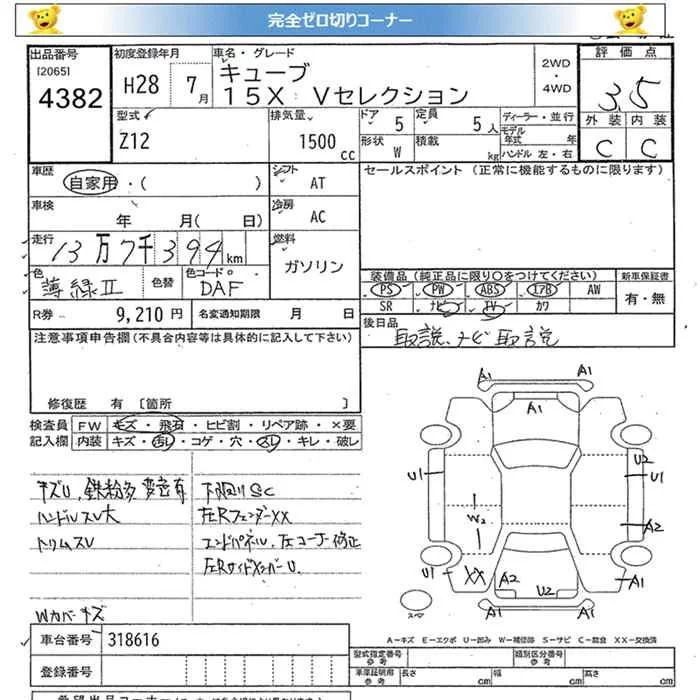 完全ゼロ切りコーナー
出品番号
[2065]
4382
初度登録年月
H28
7月
車名・グレード
キューブ
15X Vセレクション
2WD
・
4WD
評価点
3.5
外装 内装
C C
型式
Z12
排気量
1500 cc
ドア 5
定員 5人
形状 W
積載 kg
ディーラー・並行
モデル年式 年
ハンドル 左・右
車歴
自家用・( )
シフト
AT
セールスポイント (正常に機能するものに限ります)
車検
年 月( 日)
冷房
AC
走行
13万7千394km
燃料
ガソリン
色
薄緑II
色替
色コードNo.
DAF
装備品(純正品に限り○をつけてください)
新車保証書
PS PW ABS エアB AW
SR ナビ TV カワ
有・無
R券 9,210円
名変通知期限 月 日
後日品
取説、ナビ取説
注意事項申告欄(不具合内容等は具体的に記入して下さい)
修復歴 有 [箇所 ]
検査員
記入欄
FW キズ・飛石・ヒビ割・リペア跡・×要
内装 キズ・汚レ・コゲ・穴・スレ・キレ・破レ
キズU、鉄粉多
下回りSC
ハンドルスレ大
左RフェンダーXX
トリムスレ
エンドパネル、左コーナー修正
左RサイドメンバーU
Wカバーキズ
A1
A1
A1
U1
U2
U1
W2
A2
U1
XX
A2
U2
A1
A1
A1
A-キズ E-エクボ U-凹み W-補修跡 S-サビ C-腐食 XX-交換済
車台番号 318616
型式指定番号 参考
類別区分番号 参考
登録番号
車庫証明用 参考
長さ cm
幅 cm
高さ cm